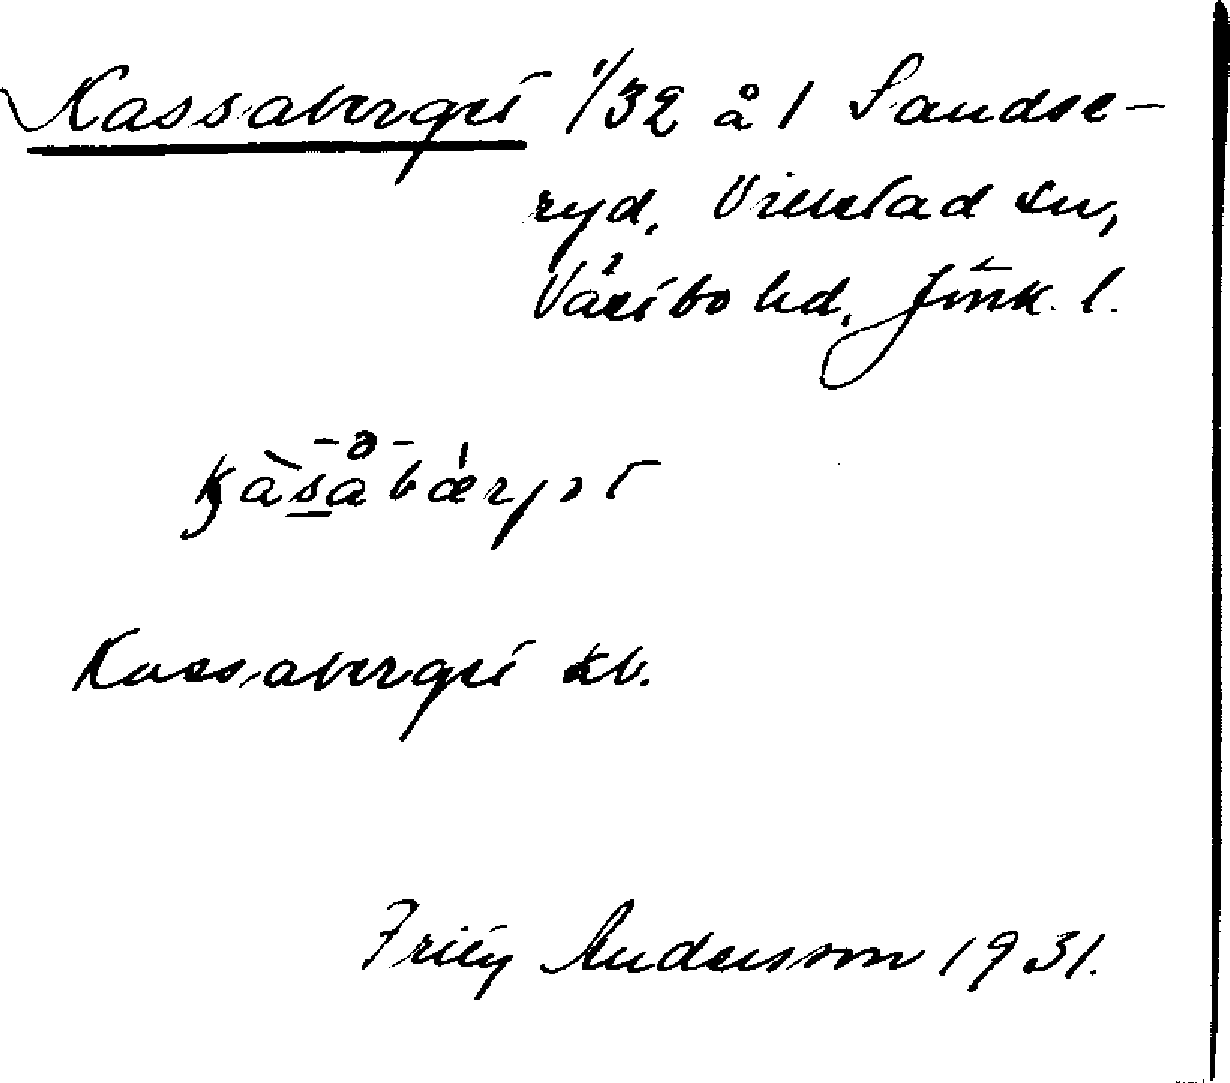 Kassaberget 1/32 å 1 Sandse-
ryd, Villstad sn,
Västbo hd, Jönk. l.
kàsåbærjət
Kassaberget kb.
Fritz Andersson 1931.